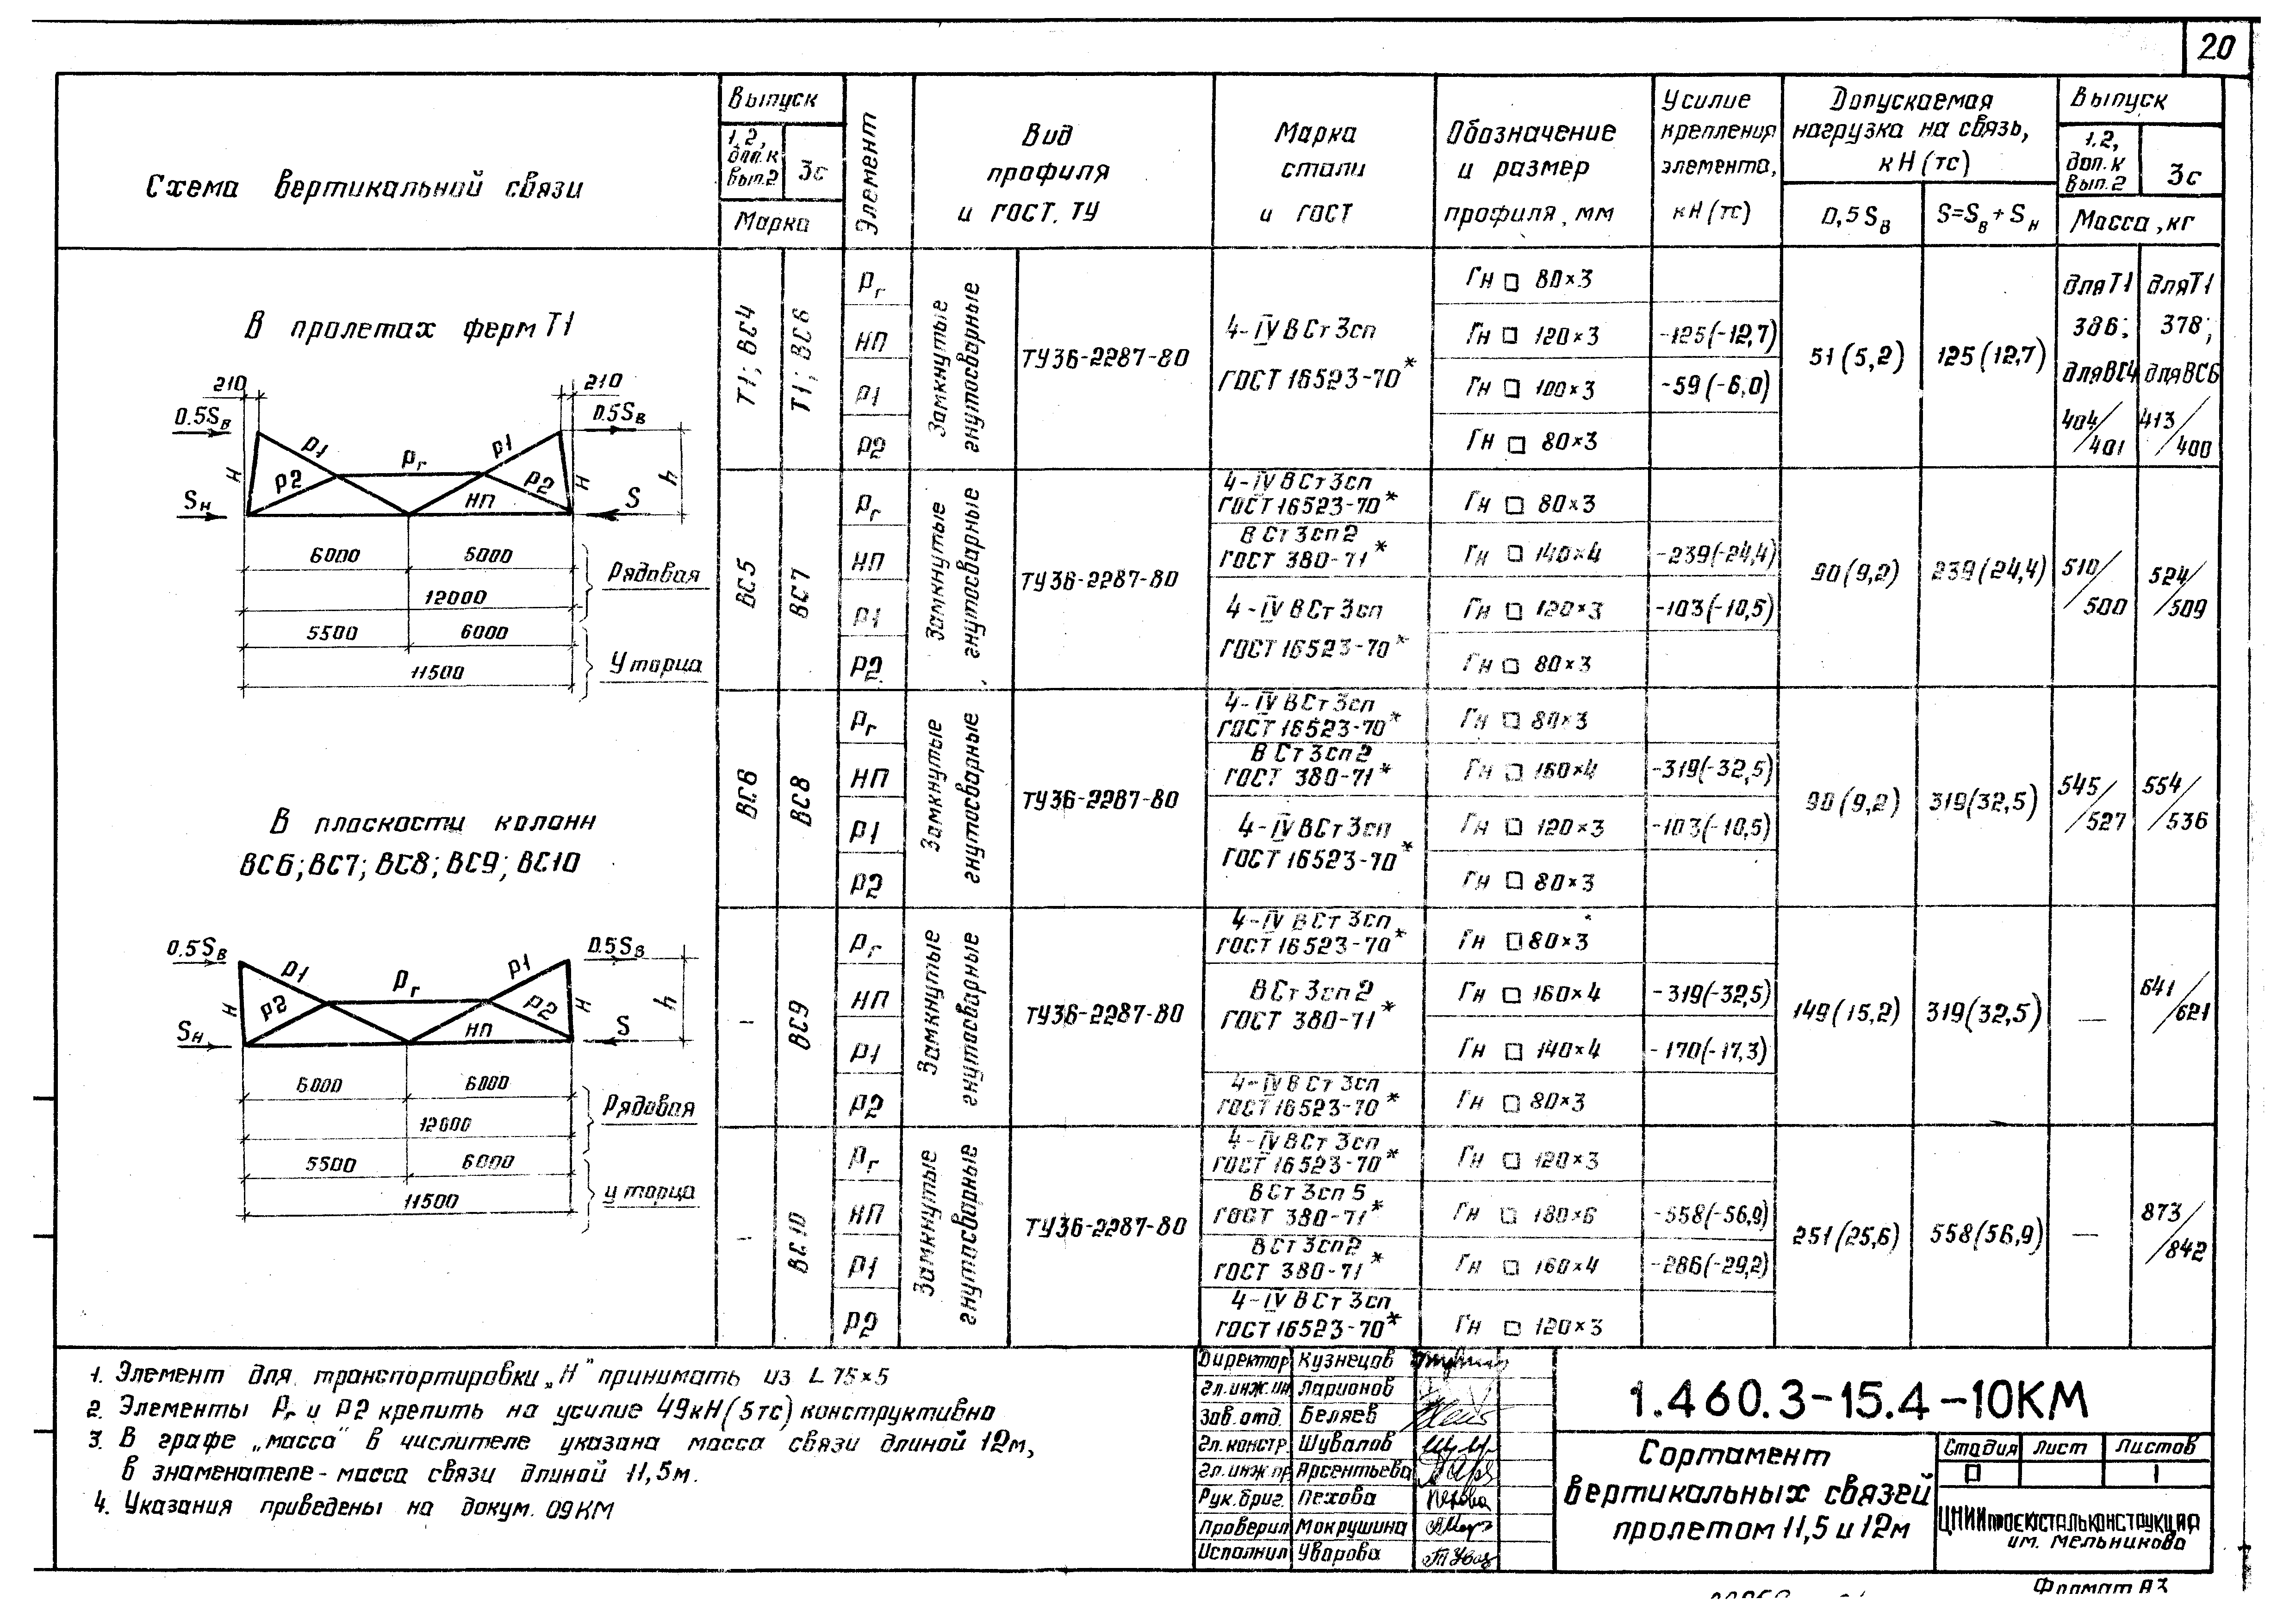 20
Схема вертикальной связи
Выпуск
1,2, доп. к вып.2
3с
Марка
Элемент
Вид профиля и ГОСТ, ТУ
Марка стали и ГОСТ
Обозначение и размер профиля, мм
Усилие крепления элемента, кН (тс)
Допускаемая нагрузка на связь, кН (тс)
0,5Sв
S=Sв+Sн
Выпуск
1,2, доп. к вып.2
3с
Масса, кг
В пролетах ферм Т1
210
210
0.5Sв
0.5Sв
р1
рг
р1
н
р2
р2
н
h
Sн
нп
S
6000
5000
Рядовая
12000
5500
6000
У торца
11500
В плоскости колонн
ВС6; ВС7; ВС8; ВС9; ВС10
0.5Sв
0.5Sв
р1
рг
р1
н
р2
р2
н
h
Sн
нп
S
6000
6000
Рядовая
12000
5500
6000
у торца
11500
Т1; ВС4
Т1; ВС6
Замкнутые гнутосварные
ТУ36-2287-80
4-IV ВСт3сп
ГОСТ 16523-70*
рг Гн □ 80×3
нп Гн □ 120×3 -125(-12,7)
р1 Гн □ 100×3 -59(-6,0)
р2 Гн □ 80×3
51(5,2)
125(12,7)
для Т1 386; для ВС4 404/401
для Т1 378; для ВС6 413/400
ВС5
ВС7
Замкнутые гнутосварные
ТУ36-2287-80
рг 4-IV ВСт3сп ГОСТ 16523-70* Гн □ 80×3
нп ВСт3сп2 ГОСТ 380-71* Гн □ 140×4 -239(-24,4)
р1 4-IV ВСт3сп Гн □ 120×3 -103(-10,5)
р2 ГОСТ 16523-70* Гн □ 80×3
90(9,2)
239(24,4)
510/500
524/509
ВС6
ВС8
Замкнутые гнутосварные
ТУ36-2287-80
рг 4-IV ВСт3сп ГОСТ 16523-70* Гн □ 80×3
нп ВСт3сп2 ГОСТ 380-71* Гн □ 160×4 -319(-32,5)
р1 4-IV ВСт3сп Гн □ 120×3 -103(-10,5)
р2 ГОСТ 16523-70* Гн □ 80×3
90(9,2)
319(32,5)
545/527
554/536
—
ВС9
Замкнутые гнутосварные
ТУ36-2287-80
рг 4-IV ВСт3сп ГОСТ 16523-70* Гн □ 80×3
нп ВСт3сп2 Гн □ 160×4 -319(-32,5)
р1 ГОСТ 380-71* Гн □ 140×4 -170(-17,3)
р2 4-IV ВСт3сп ГОСТ 16523-70* Гн □ 80×3
149(15,2)
319(32,5)
—
641/621
—
ВС10
Замкнутые гнутосварные
ТУ36-2287-80
рг 4-IV ВСт3сп ГОСТ 16523-70* Гн □ 120×3
нп ВСт3сп5 ГОСТ 380-71* Гн □ 180×6 -558(-56,9)
р1 ВСт3сп2 ГОСТ 380-71* Гн □ 160×4 -286(-29,2)
р2 4-IV ВСт3сп ГОСТ 16523-70* Гн □ 120×3
251(25,6)
558(56,9)
—
873/842
1. Элемент для транспортировки „Н" принимать из L 75×5
2. Элементы Рг и Р2 крепить на усилие 49кН(5тс) конструктивно
3. В графе „масса" в числителе указана масса связи длиной 12м,
в знаменателе - масса связи длиной 11,5м.
4. Указания приведены на докум. 09КМ
Директор Кузнецов
Гл.инж.ин Ларионов
Зав.отд. Беляев
Гл.констр. Шувалов
Гл.инж.пр Арсентьева
Рук.бриг. Пехова
Проверил Мокрушина
Исполнил Уварова
1.460.3-15.4-10КМ
Сортамент
вертикальных связей
пролетом 11,5 и 12м
Стадия Лист Листов
Р 1
ЦНИИпроектстальконструкция
им. Мельникова
Формат А3